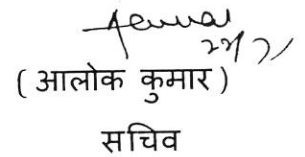 ( आलोक कुमार )
सचिव